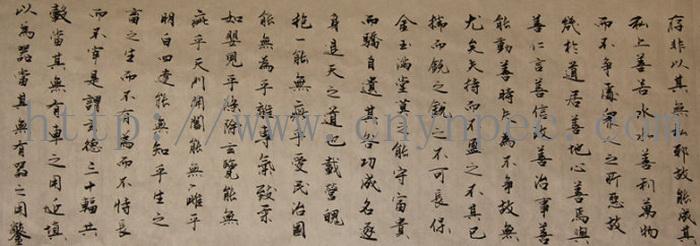 存非以其無私邪故能成其
私上善若水水善利萬物
而不爭處眾人之所惡故
幾於道居善地心善淵與
善仁言善信善治事善
能動善時夫為不爭故無
尤矣持而盈之不其已
揣而銳之不可長保
金玉滿堂莫之能守富貴
而驕自遺其咎功成名遂
身退天之道也載營魄
抱一能無離乎愛民治國
能無為乎專氣致柔
如嬰兒乎滌除玄覽能無
疵乎天門開闔能無雌乎
明白四達能無知乎生之
畜之生而不有為而不恃長
而不宰是謂德三十輻共
轂當其無有車之用埏埴
以為器當其無有器之用鑿
http://www.cnynpec.com